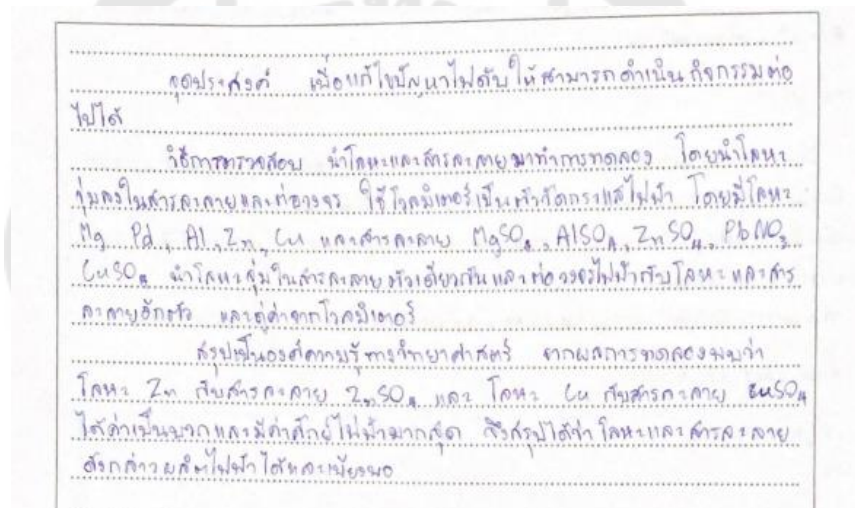 จุดประสงค์ เพื่อแก้ไขปัญหาไฟดับให้สามารถดำเนินกิจกรรมต่อ
ไปได้
วิธีการตรวจสอบ นำโลหะและสารละลายมาทำการทดลอง โดยนำโลหะ
จุ่มลงในสารละลายและต่อวงจร ใช้โวลมิเตอร์เป็นตัววัดกระแสไฟฟ้า โดยมีโลหะ
Mg Pd, Al, Zn, Cu และสารละลาย MgSO4, AlSO4, ZnSO4, PbNO3
CuSO4 นำโลหะจุ่มในสารละลายตัวเดียวกันและต่อวงจรไฟฟ้ากับโลหะและสาร
ละลายอีกตัว และดูค่าจากโวลมิเตอร์
สรุปเป็นองค์ความรู้ทางวิทยาศาสตร์ จากผลการทดลองพบว่า
โลหะ Zn กับสารละลาย ZnSO4 และ โลหะ Cu กับสารละลาย CuSO4
ได้ค่าเป็นบวกและมีค่าศักย์ไฟฟ้ามากสุด จึงสรุปได้ว่า โลหะและสารละลาย
ดังกล่าวผลิตไฟฟ้าได้และเพียงพอ